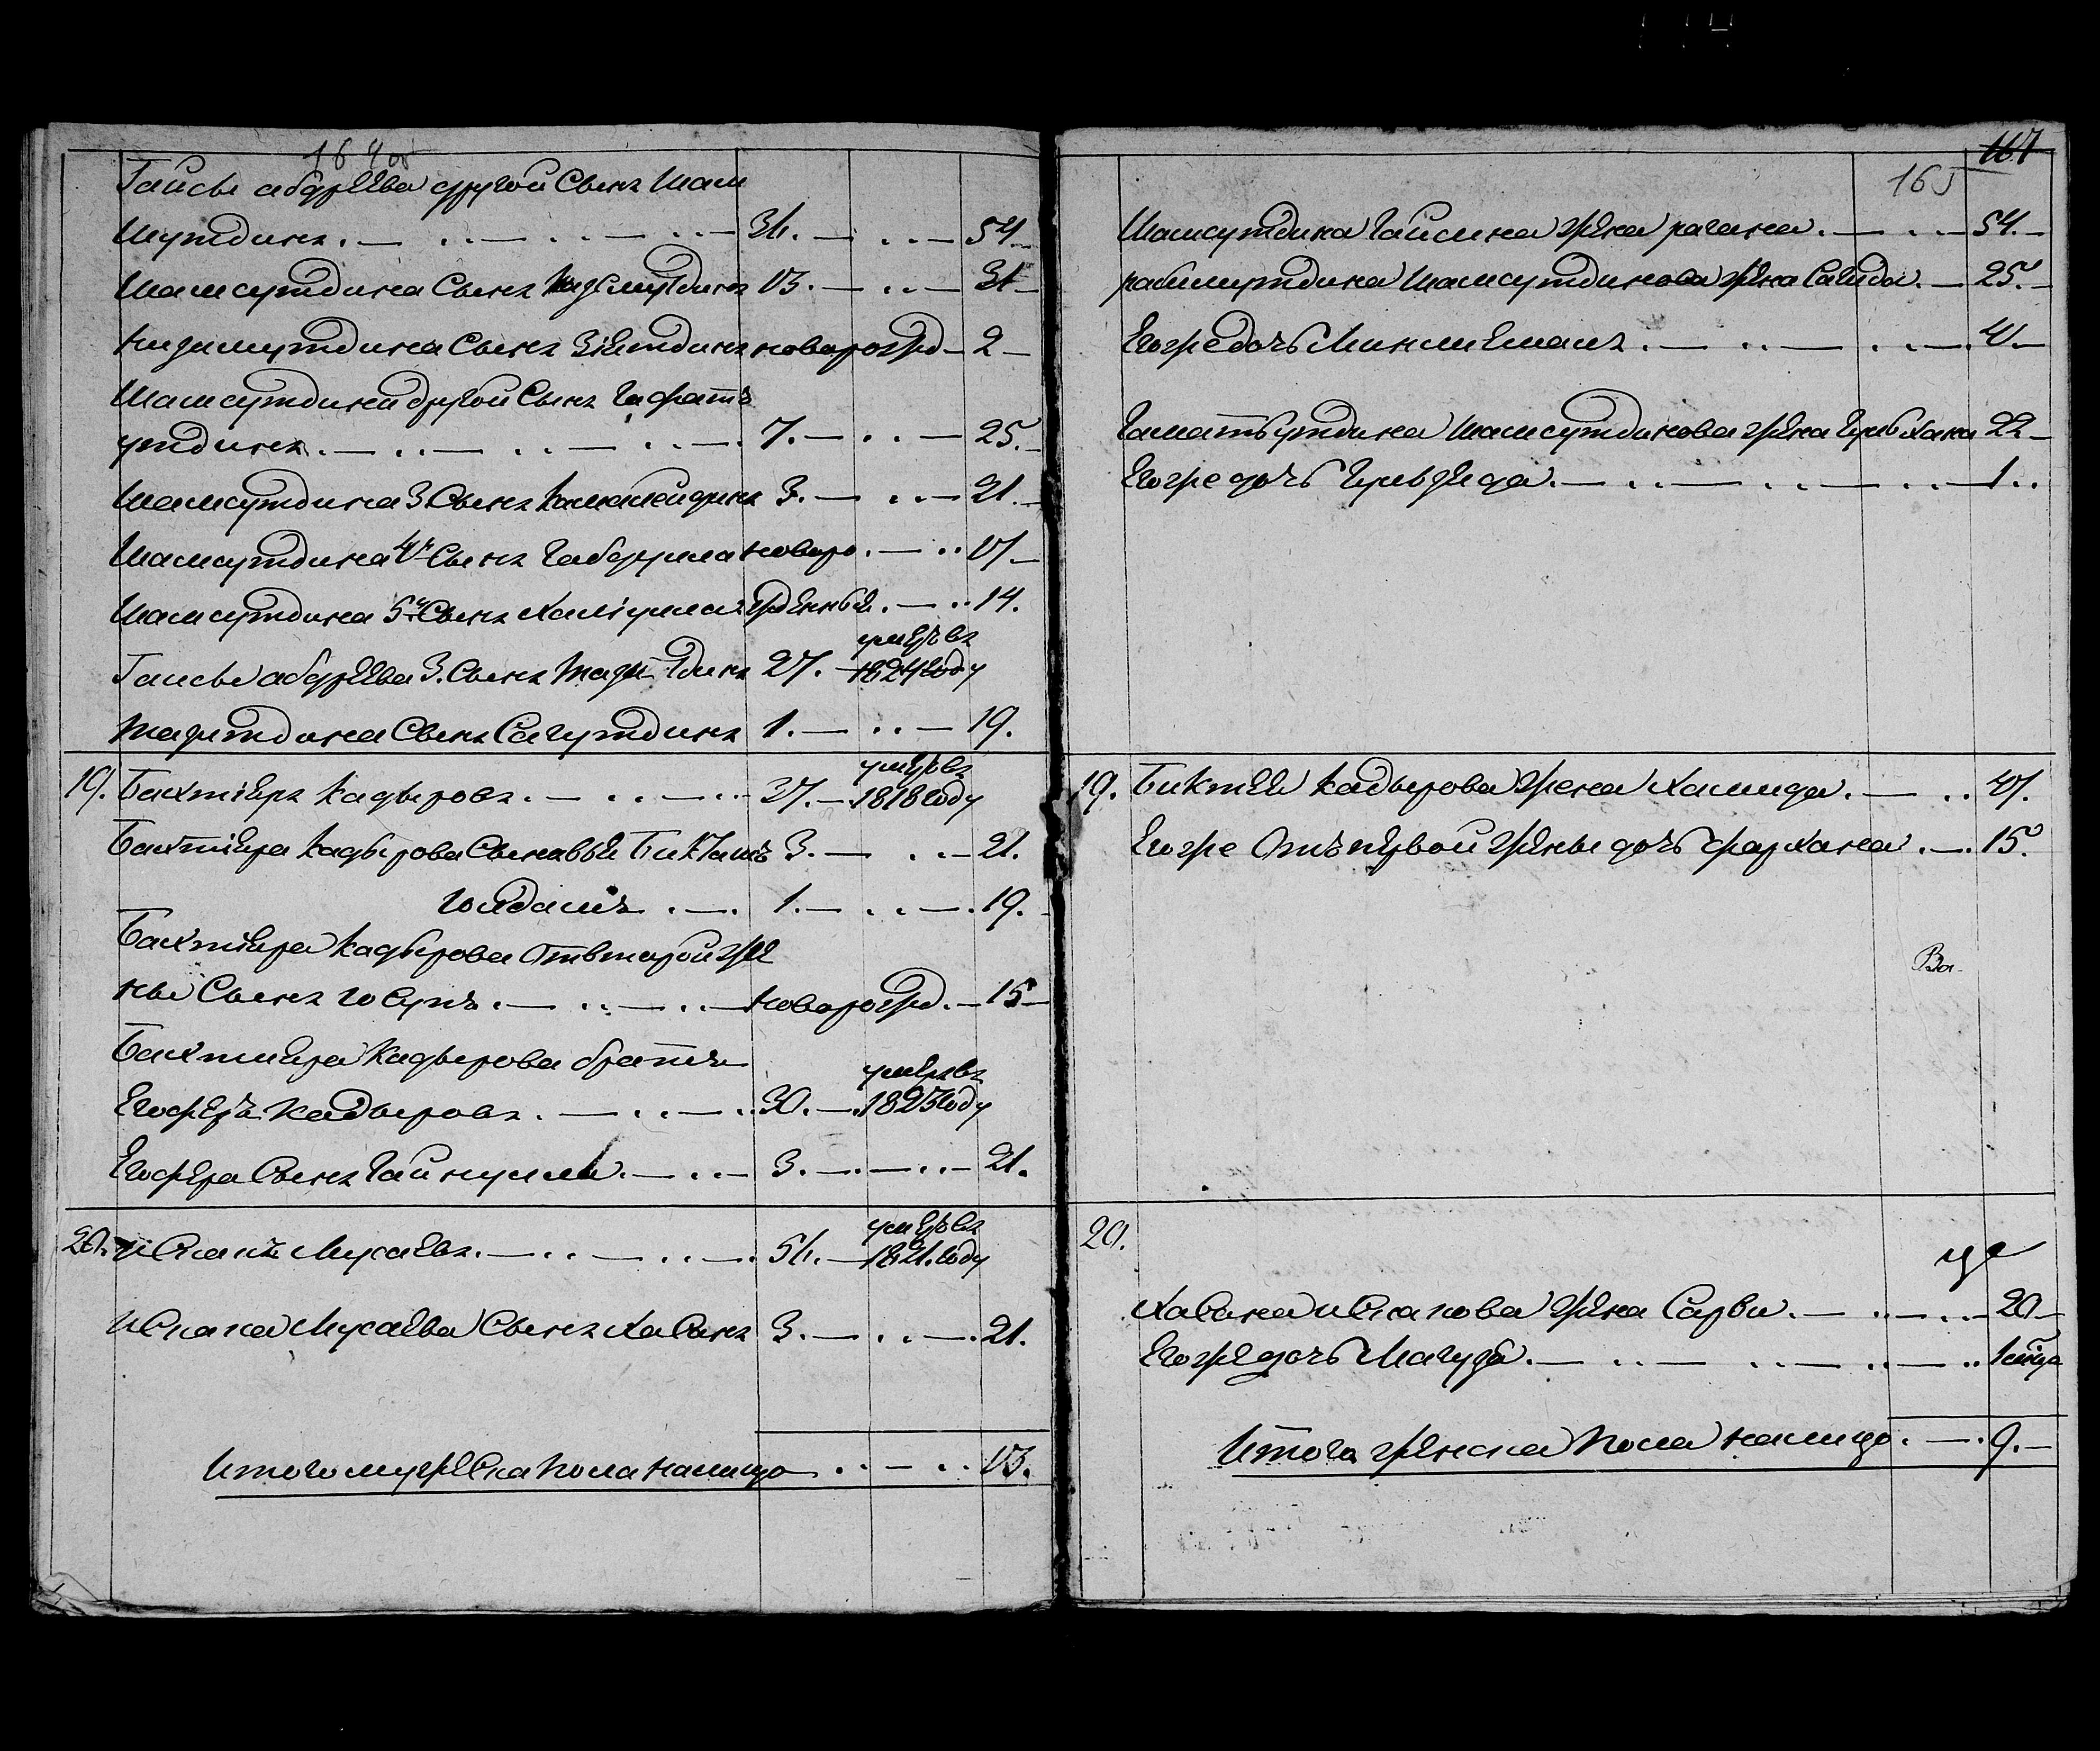 164 об
Гайсы абдреева другой Сынъ Шам
шутдинъ. 36. 54.
Шамсутдина Сынъ Низамутдинъ 13. 31
Низамутдина Сынъ Зіятдинъ новорожд 2
Шамсутдина другой Сынъ
утдинъ. 7. 25.
Шамсутдина 3. Сынъ Камалейдинъ 3. 21.
Шамсутдина 4й Сынъ Габдулла новоро 17
Шамсутдина 5й Сынъ Халіулла жденныя. 14.
Гайсы абдреева 3. Сынъ Тазитдинъ 27. умеръ въ 1824 году
Тазитдина Сынъ Сагутдинъ 1. 19.
19. Бахтіяръ Кадыровъ. 37. умеръ въ 1818 году
Бахтіяра Кадырова Сыновья Бикташъ 3. 21.
Юлдашъ 1. 19.
Бахтіяра Кадырова От второй же
ны Сынъ Юсупъ. новорожд. 15
Бахтіяра Кадырова братъ
Ягоферъ Кадыровъ. 30. умеръ въ 1823 году
Ягофера Сынъ Гайнулла 3. 21.
20. Исхакъ Мусаевъ. 51. умеръ въ 1821. году
Исхака Мусаева Сынъ Хасанъ 3. 21.
Итого мужеска пола налицо 13.
167
165
Шамсутдина Гайсина жена рагана. 54.
Шамсутдинова жена Сагида. 25.
Егоже дочь 4.
Шамсутдинова жена Гульхана 22
Егоже дочь Гульзяда. 1.
19. Биктея Кадырова жена Хамида. 47.
Егоже Отъ первой жены дочь фархана. 15.
20.
Хасана Исхакова жена Сарви. 20
Егоже дочь Магуба.
Итого женска пола налицо. 9.